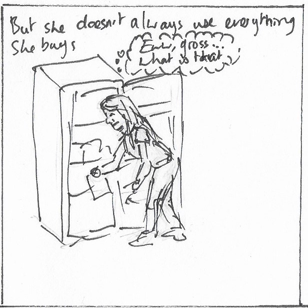 But she doesn't always use everything
she buys
Eww, gross...
what is that